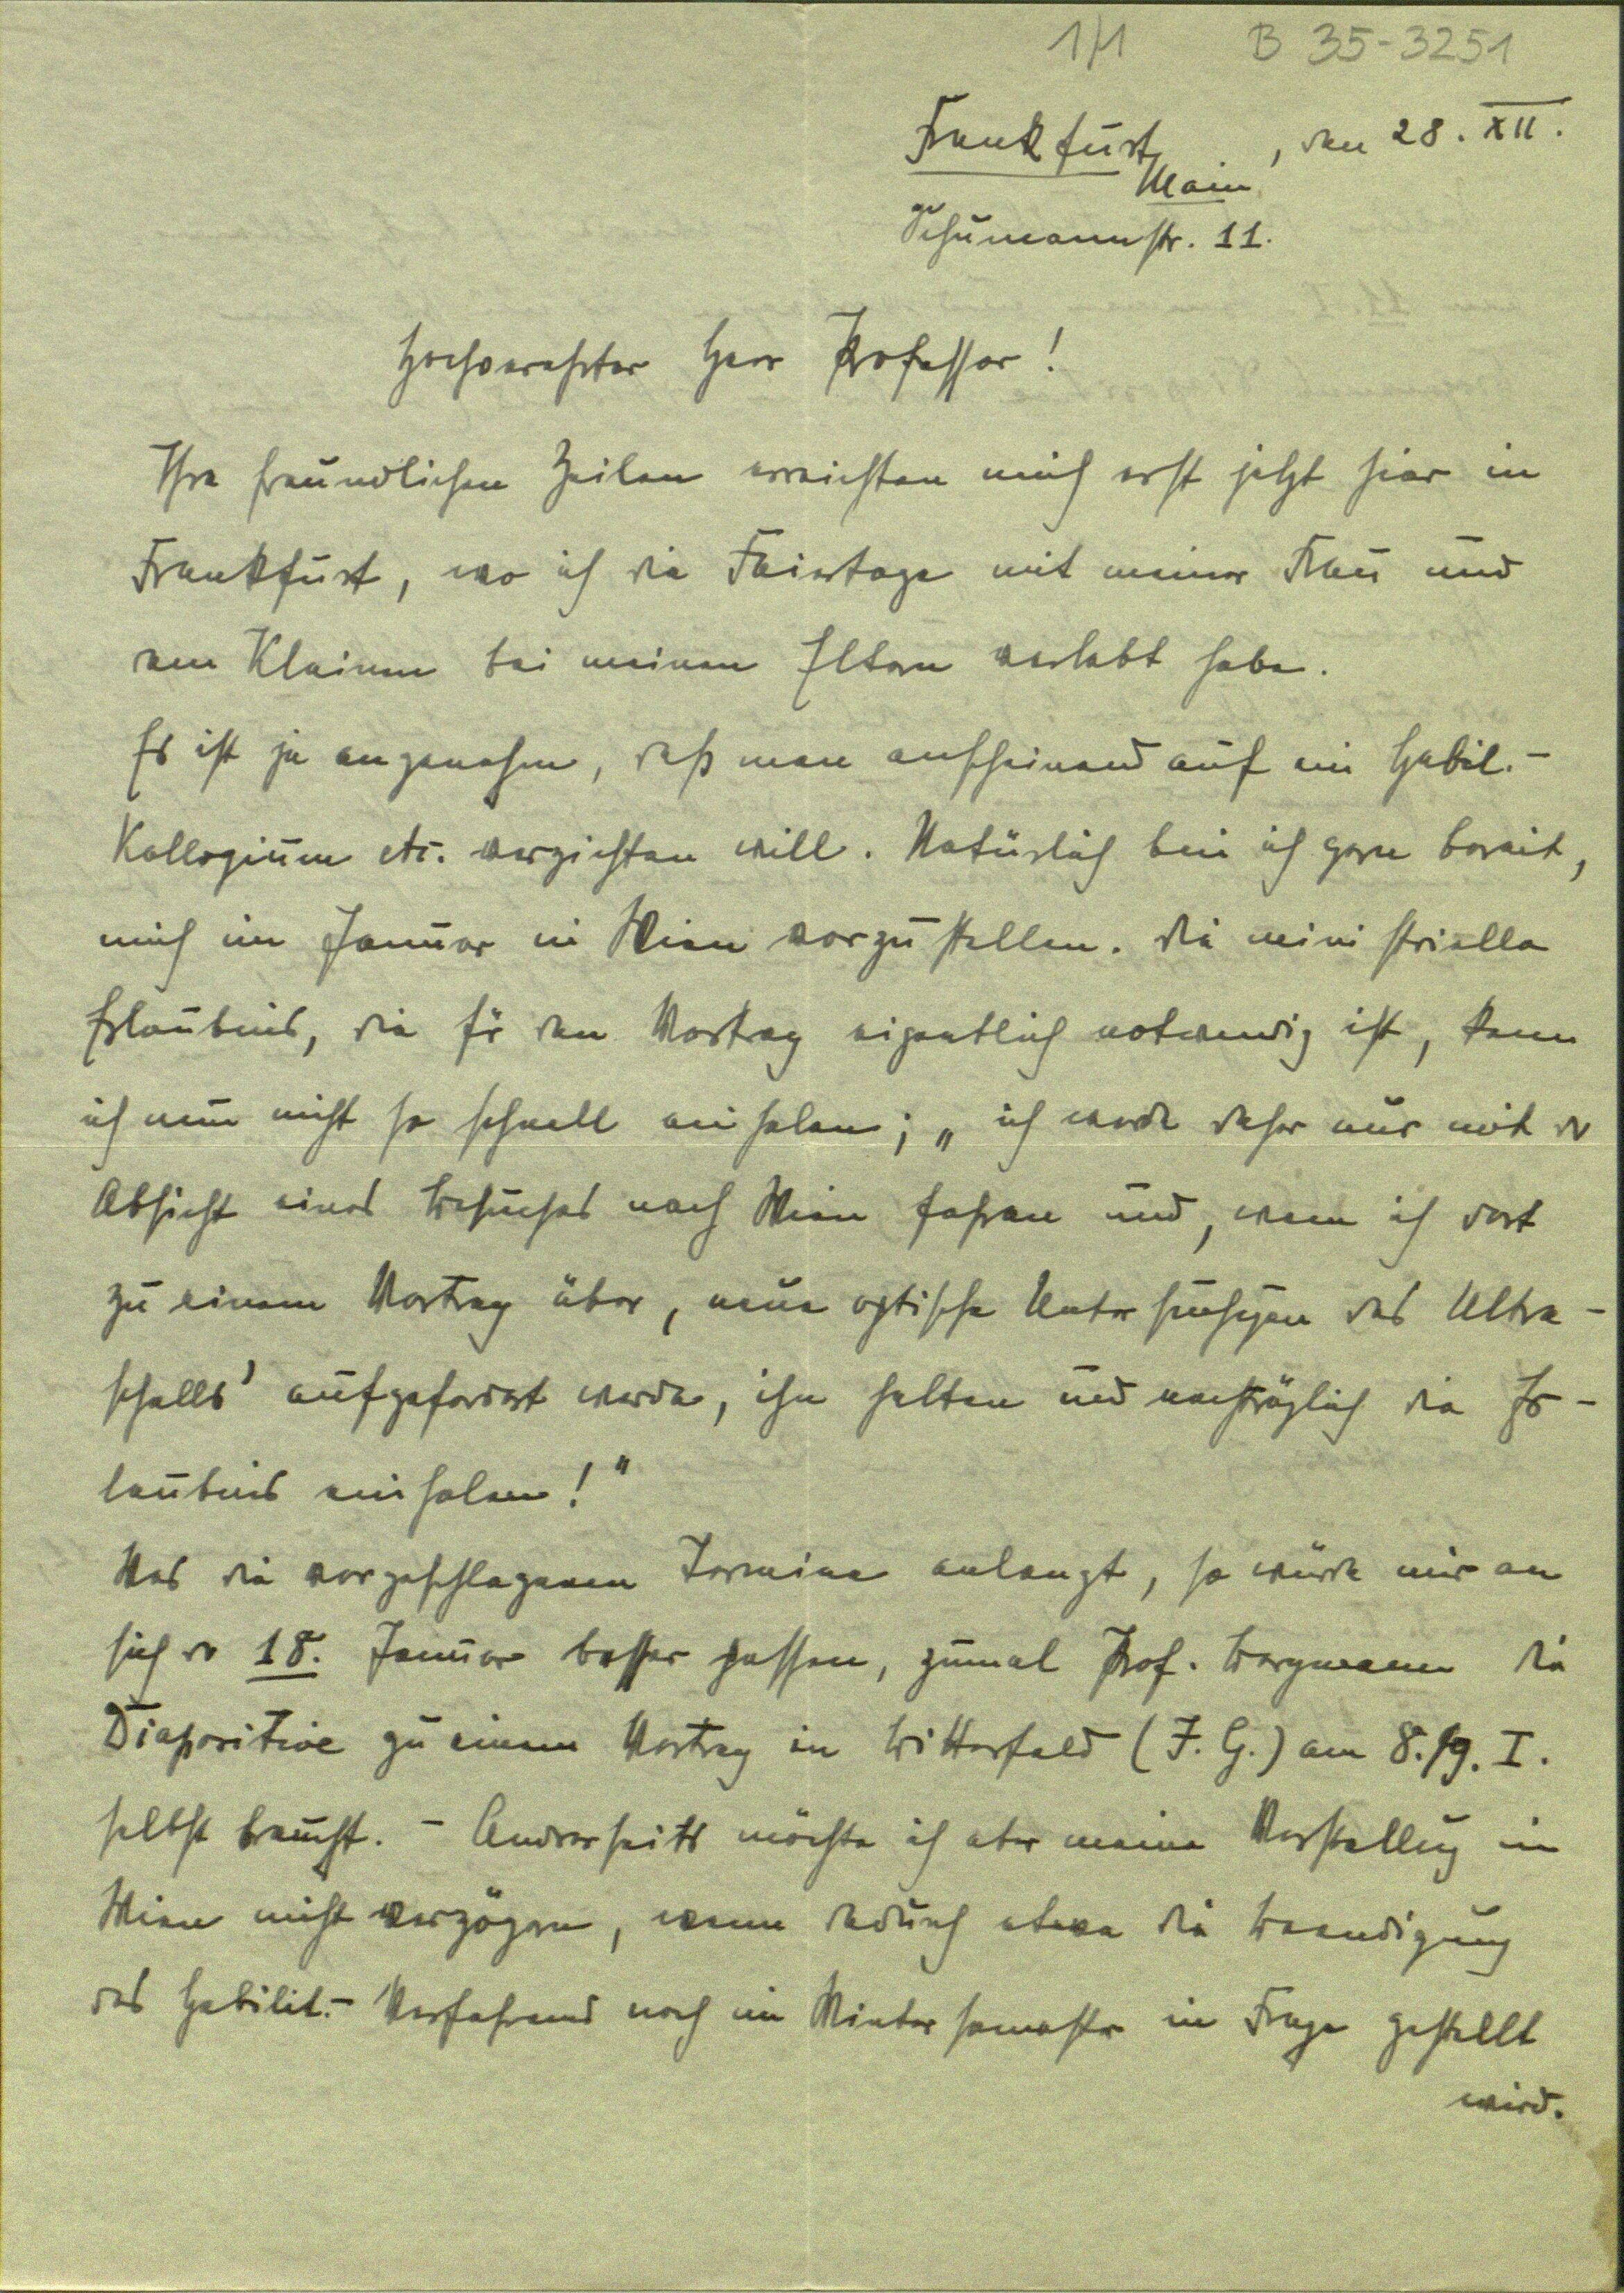 1/1 B 35-3251
Frankfurt, den 28. XII.
Main
Schumannstr. 11.
Hochverehrter Herr Professor!
Ihre freundlichen Zeilen erreichten mich erst jetzt hier in
Frankfurt, wo ich die Feiertage mit meiner Frau und
dem Kleinen bei meinen Eltern verlebt habe.
Es ist ja angenehm, daß man anscheinend auf ein Habil.-
Kollogium etc. verzichten will. Natürlich bin ich gern bereit,
mich im Januar in Wien vorzustellen. Die ministrielle
Erlaubnis, die für den Vortrag eigentlich notwendig ist, kann
ich nun nicht so schnell einholen; „ich werde daher nur mit der
Absicht eines Besuches nach Wien fahren und, wenn ich dort
zu einem Vortrag über ‚neue optische Untersuchungen des Ultra-
schalls' aufgefordert werde, ihn halten und nachträglich die Er-
laubnis einholen!"
Was die vorgeschlagenen Termine anlangt, so würde mir an
sich der 18. Januar besser passen, zumal Prof. Bergmann die
Diapositive zu einem Vortrag in Bitterfeld (I.G.) am 8./9. I.
selbst braucht. - Andrerseits möchte ich aber meine Vorstellung in
Wien nicht verzögern, wenn dadurch etwa die Beendigung
des Habilit.- Verfahrens noch im Wintersemester in Frage gestellt
wird.